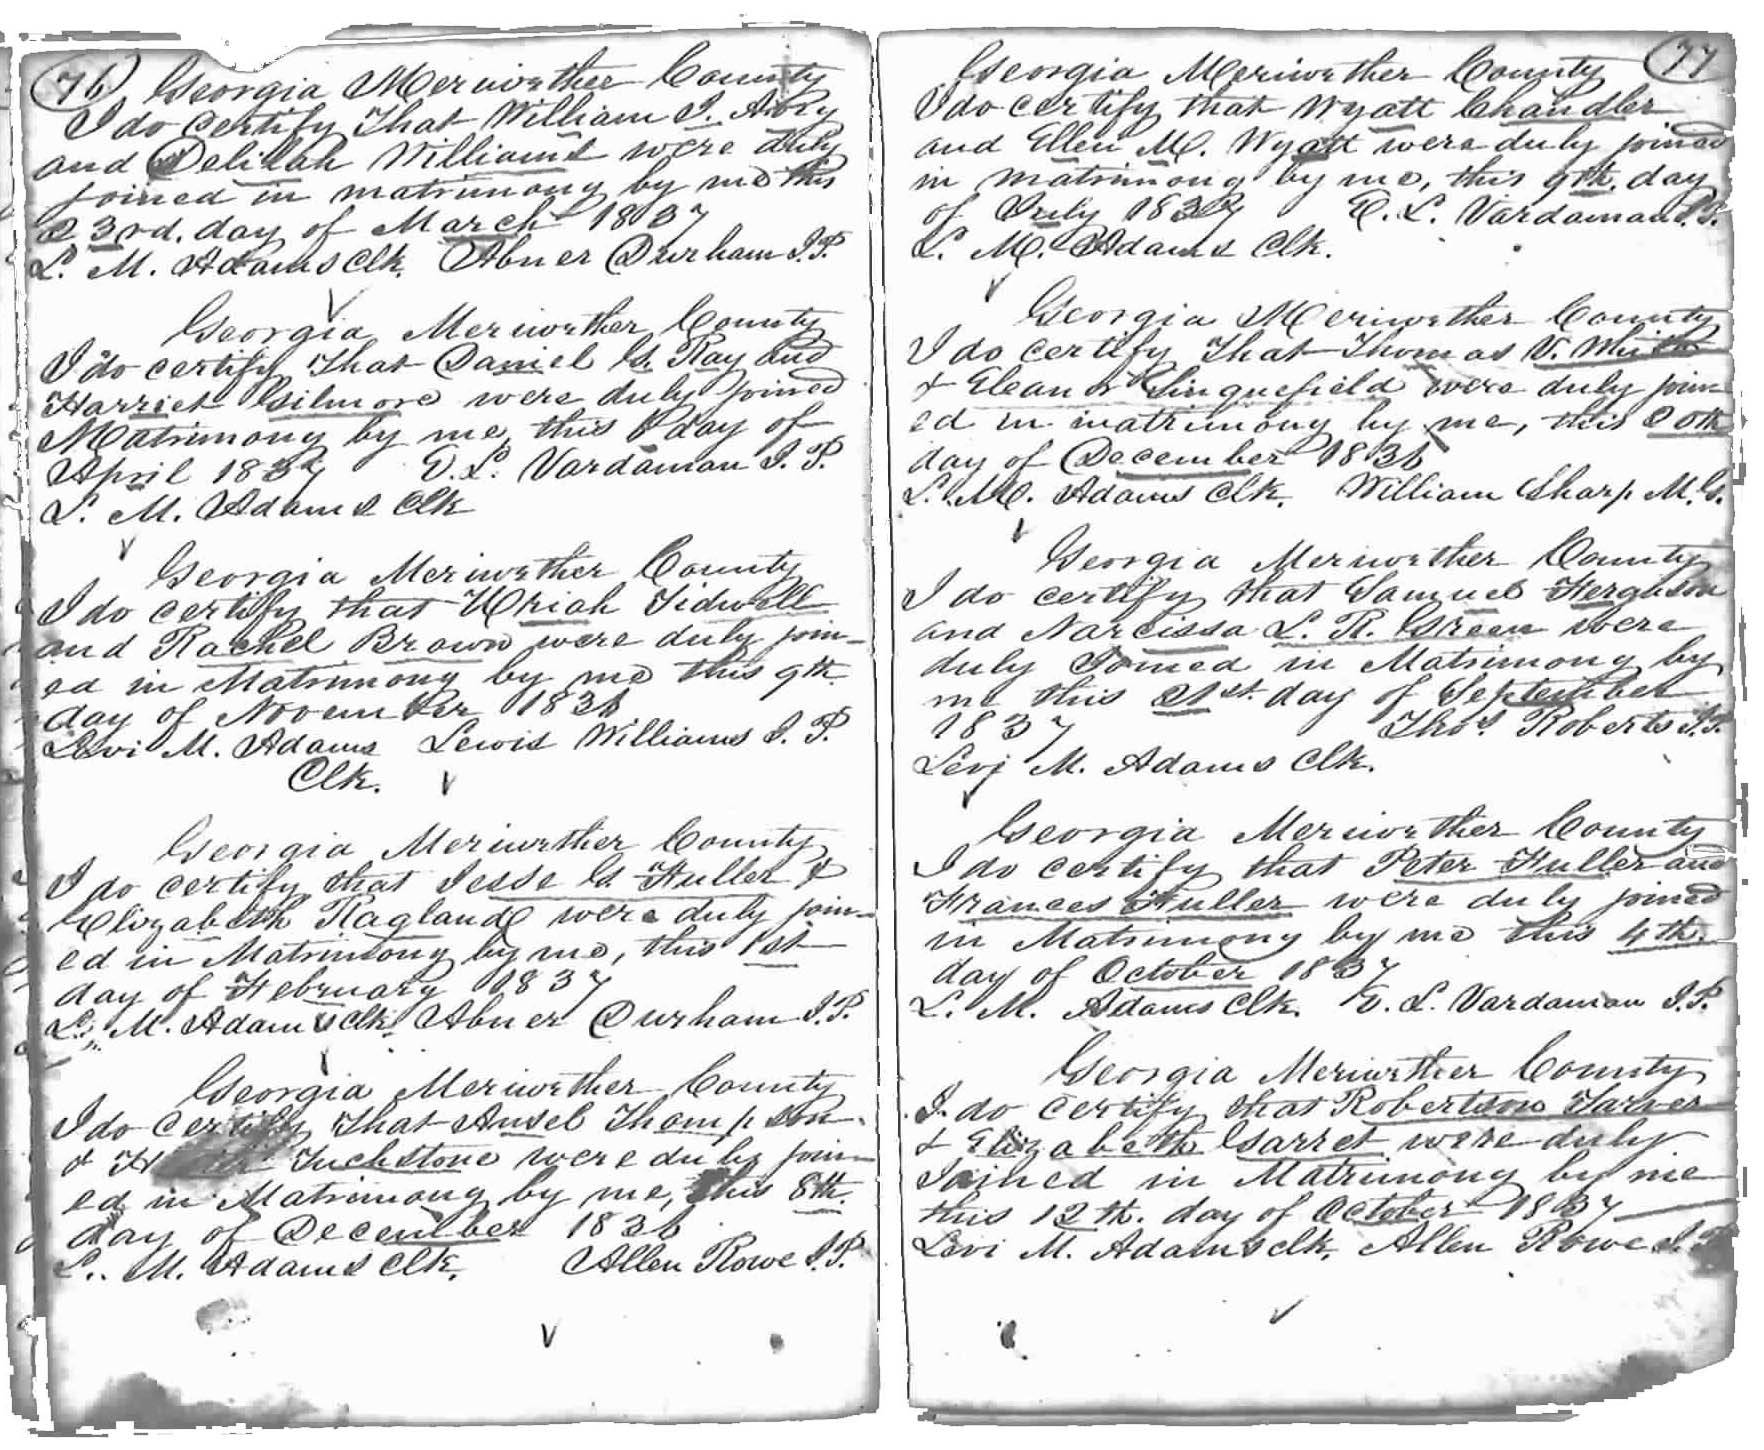 76
Georgia Meriwether County
I do certify That William I. Avory
and Delilah Williams were duly
joined in matrimony by me this
23rd. day of March 1837
L. M. Adams Clk. Abner Durham J.P.
Georgia Meriwether County
I do certify That Daniel G. Ray and
Harriet Gilmore were duly joined
Matrimony by me this 6 day of
April 1837 E. L. Vardaman J.P.
L. M. Adams Clk
Georgia Meriwether County
I do certify that Uriah Tidwell
and Rachel Brown were duly join-
ed in Matrimony by me this 9th
day of November 1836
Levi M. Adams Lewis Williams J.P.
Clk.
Georgia Meriwether County
I do certify that Jesse G. Fuller &
Elizabeth Ragland were duly join-
ed in Matrimony by me, this 1st
day of February 1837
L. M. Adams Clk. Abner Durham J.P.
Georgia Meriwether County
I do certify That Ansel Thompson
& Tuchstone were duly join-
ed in Matrimony by me, this 8th.
day of December 1836
L. M. Adams Clk. Allen Rowe J.P.
77
Georgia Meriwether County
I do certify that Wyatt Chandler
and Ellen M. Wyatt were duly joined
in matrimony by me, this 9th. day
of July 1837 E. L. Vardaman J.P.
L. M. Adams Clk.
Georgia Meriwether County
I do certify That Thomas V.
& Eleanor Sinquefield were duly join
ed in matrimony by me, this 20th
day of December 1836
L. M. Adams Clk. William Sharp M.G.
Georgia Meriwether County
I do certify that Samuel Ferguson
and Narcissa L. R. Green were
duly Joined in Matrimony by
me this 21st. day of September
1837 Thos. Roberts J.P.
Levi M. Adams Clk.
Georgia Meriwether County
I do certify that Peter Fuller and
Frances Fuller were duly joined
in Matrimony by me this 4th.
day of October 1837
L. M. Adams Clk. E. L. Vardaman J.P.
Georgia Meriwether County
I do certify that Robertson Tarver
& Elizabeth Garret were duly
Joined in Matrimony by me
this 12th. day of October 1837
Levi M. Adams Clk. Allen Rowe J.P.